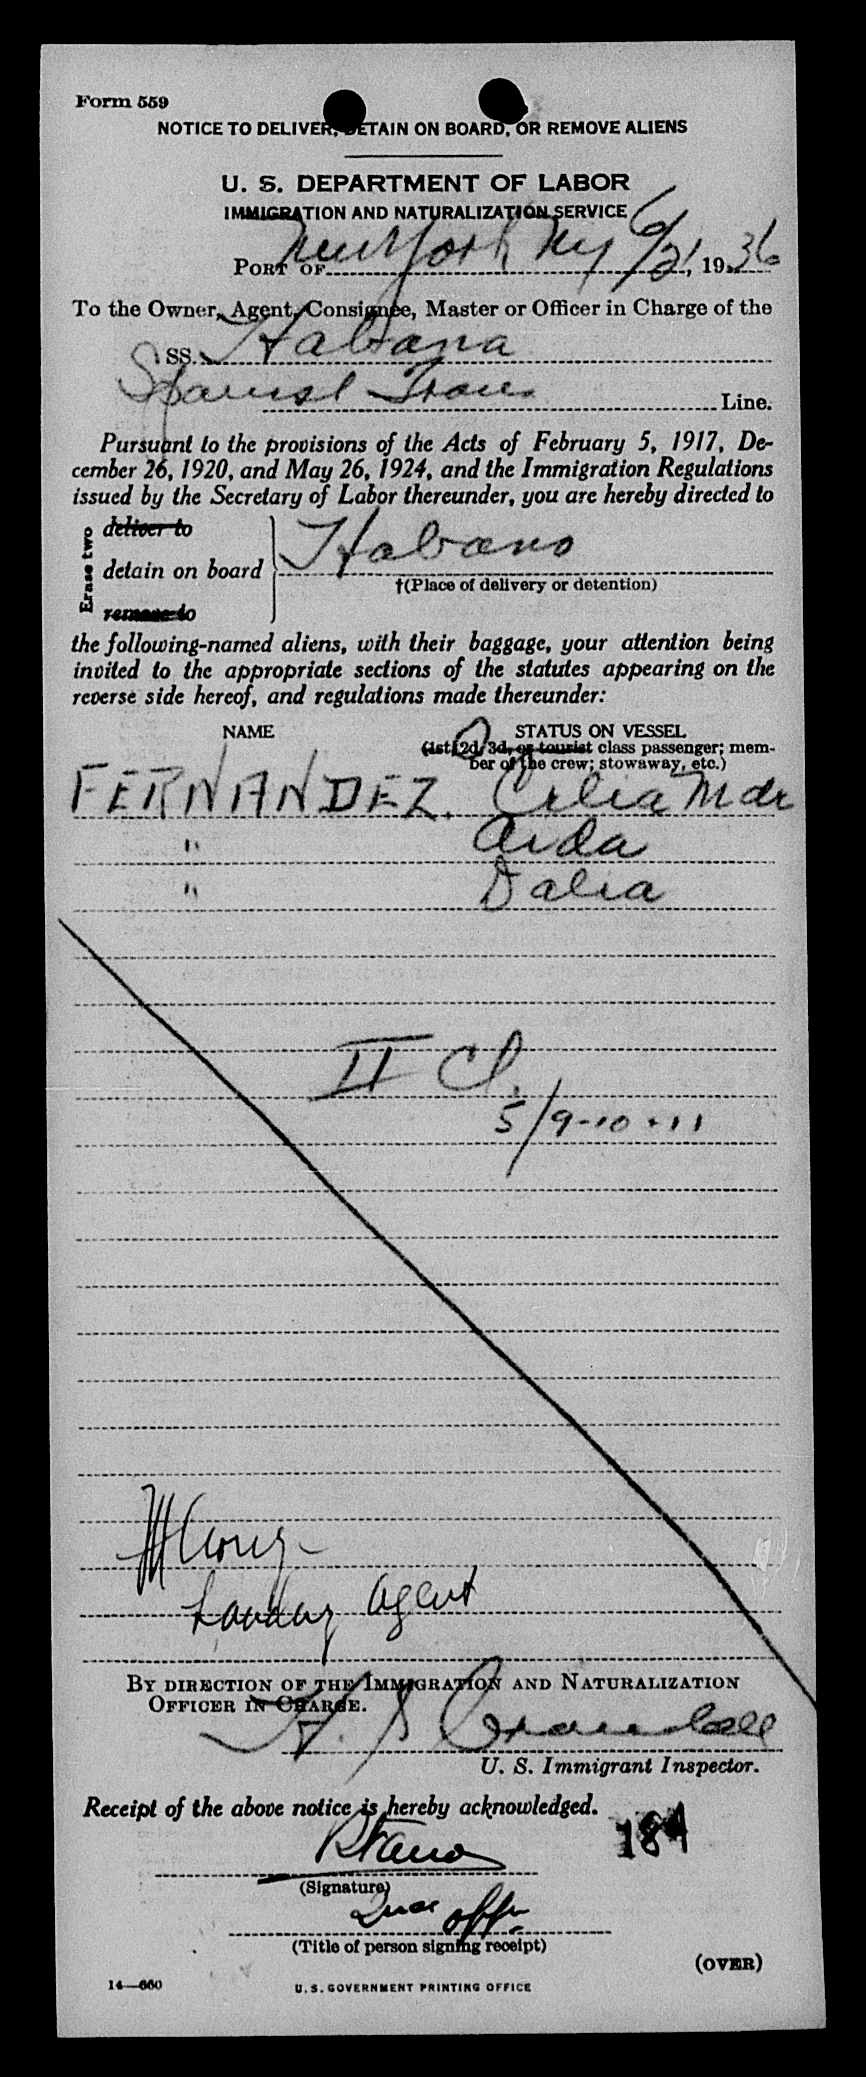 Form 559
NOTICE TO DELIVER, DETAIN ON BOARD, OR REMOVE ALIENS
U. S. DEPARTMENT OF LABOR
IMMIGRATION AND NATURALIZATION SERVICE
PORT OF New York Ny 6/21, 1936
To the Owner, Agent, Consignee, Master or Officer in Charge of the
SS. Habana
Spanish Trans Line.
Pursuant to the provisions of the Acts of February 5, 1917, De-
cember 26, 1920, and May 26, 1924, and the Immigration Regulations
issued by the Secretary of Labor thereunder, you are hereby directed to
Erase two
deliver to
detain on board
Habana
†(Place of delivery or detention)
remove to
the following-named aliens, with their baggage, your attention being
invited to the appropriate sections of the statutes appearing on the
reverse side hereof, and regulations made thereunder:
NAME STATUS ON VESSEL
(1st, 2d, 3d, or tourist class passenger; mem-
ber of the crew; stowaway, etc.)
FERNANDEZ. Celia M de
" Aida
" Dalia
II Cl.
5/9-10-11
Landing agent
BY DIRECTION OF THE IMMIGRATION AND NATURALIZATION
OFFICER IN CHARGE.
H. S Crandall
U. S. Immigrant Inspector.
Receipt of the above notice is hereby acknowledged.
184
(Signature)
offr
(Title of person signing receipt)
(OVER)
14—660 U. S. GOVERNMENT PRINTING OFFICE